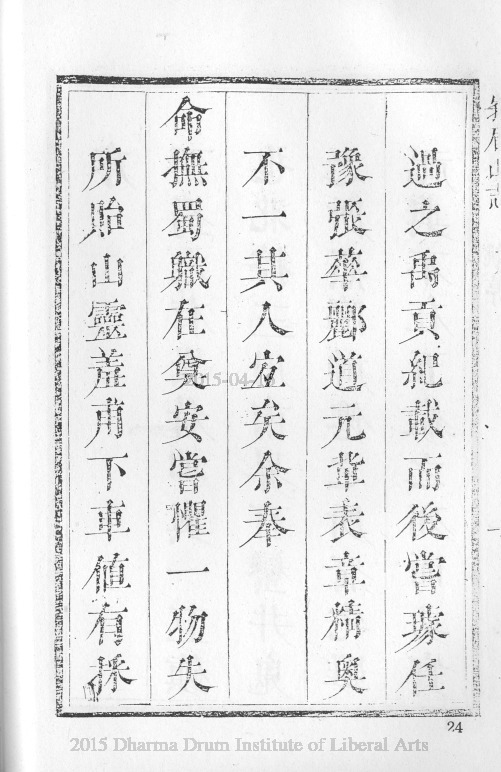 眉山志
過之禹貢紀載而後嘗璩任
豫張華酈道元輩表章精奧
不一其人宜矣余奉
命撫蜀職在奠安嘗懼一物失
所貽山靈羞甫下車值有採
24
2015 Dharma Drum Institute of Liberal Arts